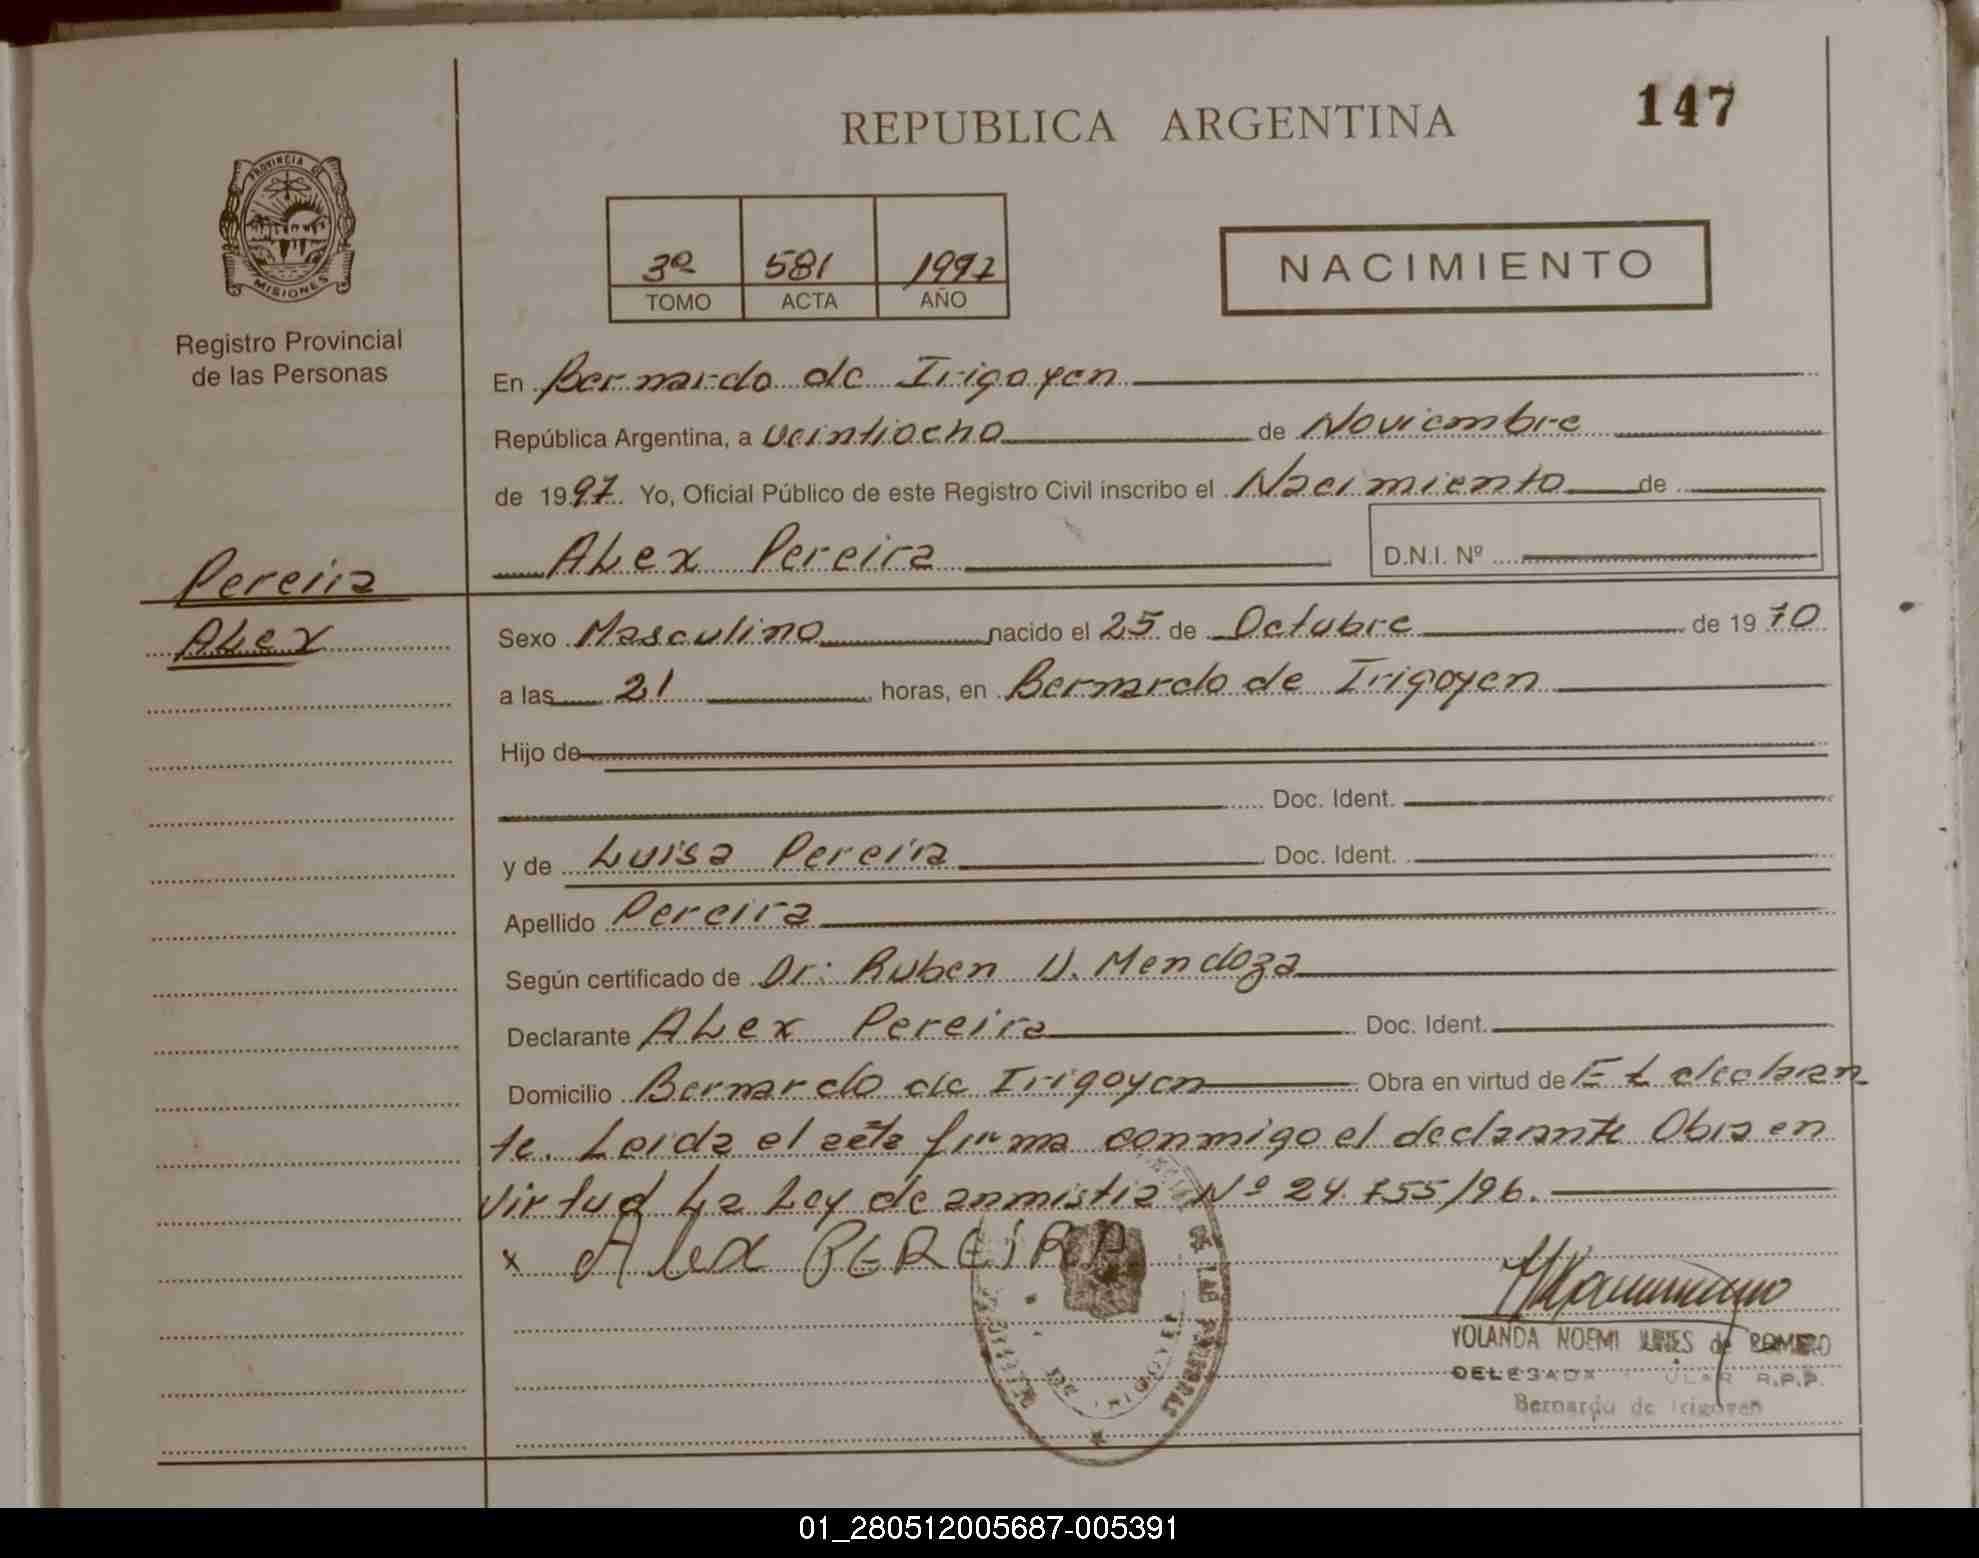 REPUBLICA ARGENTINA
147
PROVINCIA DE
MISIONES
Registro Provincial
de las Personas
3º 581 1997
TOMO ACTA AÑO
NACIMIENTO
En Bernardo de Irigoyen
República Argentina, a veintiocho de Noviembre
de 1997. Yo, Oficial Público de este Registro Civil inscribo el Nacimiento de
Alex Pereira D.N.I. Nº
Pereira
Alex
Sexo Masculino nacido el 25 de Octubre de 1970
a las 21 horas, en Bernardo de Irigoyen
Hijo de
Doc. Ident.
y de Luisa Pereira Doc. Ident.
Apellido Pereira
Según certificado de Dr: Ruben V. Mendoza
Declarante Alex Pereira Doc. Ident.
Domicilio Bernardo de Irigoyen Obra en virtud de El declaran
te. Leida el acta firma conmigo el declarante Obra en
virtud La Ley de anmistia Nº 24.755/96.
x Alex PEREIRA
DE LAS PERSONAS
YOLANDA NOEMI de ROMERO
DELEGADA R.P.P.
Bernardo de Irigoyen
01_280512005687-005391